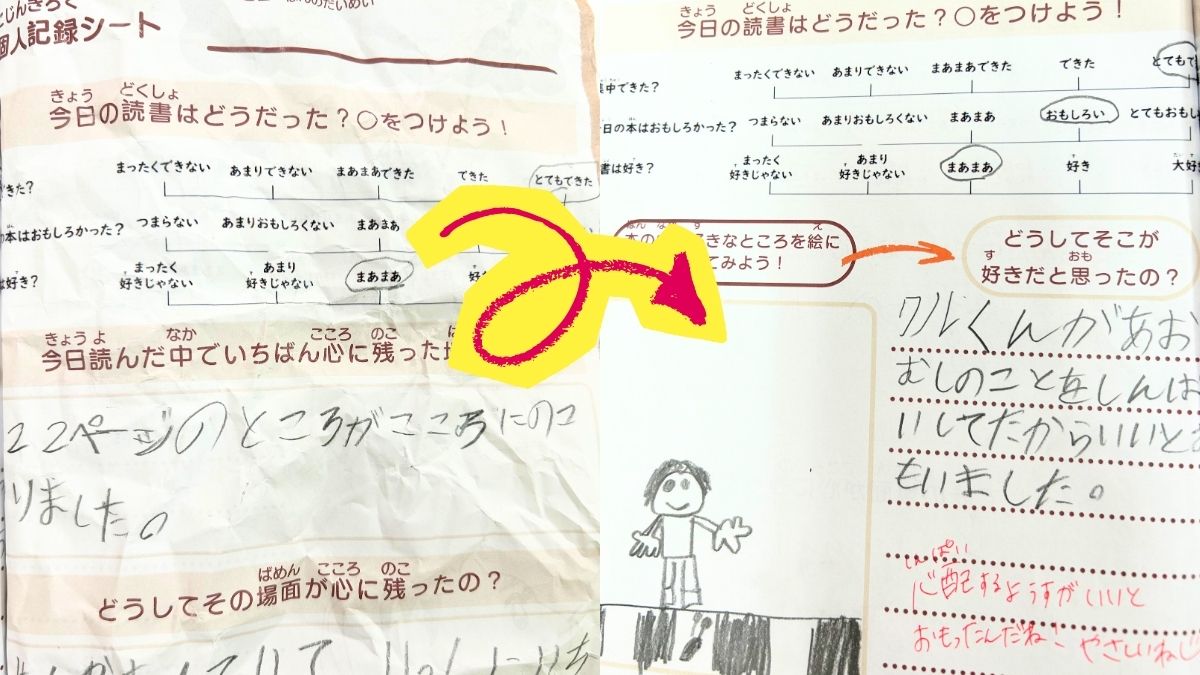 個人記録シート
きょう どくしょ
今日の読書はどうだった？○をつけよう！
まったくできない あまりできない まあまあできた できた とてもできた
きた？
つまらない あまりおもしろくない まあまあ
の本はおもしろかった？
まったく好きじゃない あまり好きじゃない まあまあ
は好き？
きょう よ なか こころ のこ
今日読んだ中でいちばん心に残った
22ページのところがこころにのこ
りました。
ばめん こころ のこ
どうしてその場面が心に残ったの？
きょう どくしょ
今日の読書はどうだった？○をつけよう！
まったくできない あまりできない まあまあできた できた とてもで
中できた？
つまらない あまりおもしろくない まあまあ おもしろい とてもおもし
日の本はおもしろかった？
まったく好きじゃない あまり好きじゃない まあまあ 好き 大好
書は好き？
きなところを絵に
てみよう！
どうしてそこが
す おも
好きだと思ったの？
ワルくんがあお
むしのことをしんぱ
いしてたからいいとお
もいました。
しんぱい
心配するようすがいいと
おもったんだね！やさしいね